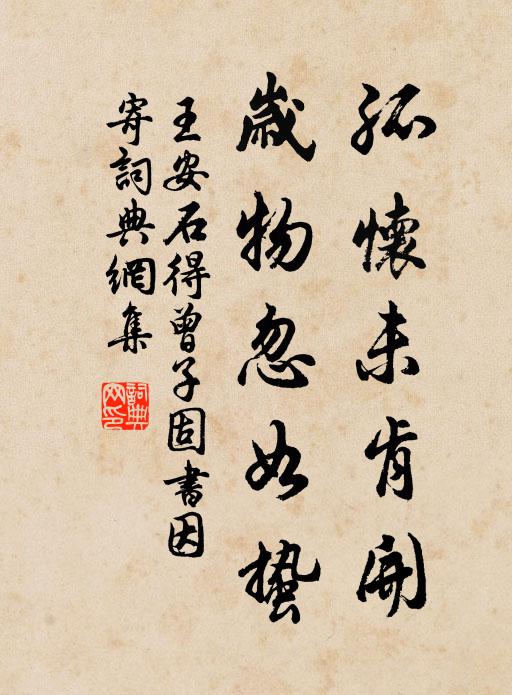 孤懷未肯開
歲物忽如蟄
王安石得曾子固書因
寄詞典網集
詞典網印